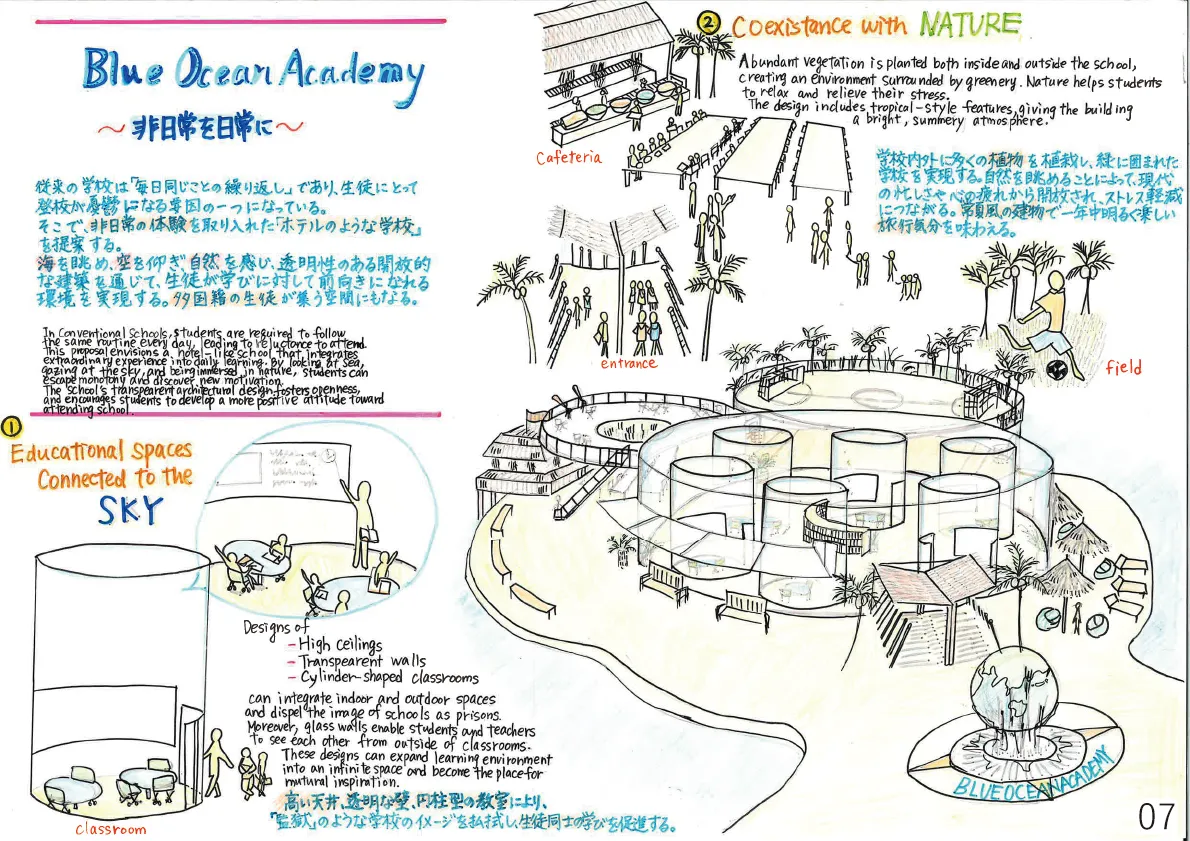 Blue Ocean Academy
～非日常を日常に～
従来の学校は「毎日同じことの繰り返し」であり、生徒にとって
登校が憂鬱になる要因の一つになっている。
そこで、非日常の体験を取り入れた「ホテルのような学校」
を提案する。
海を眺め、空を仰ぎ、自然を感じ、透明性のある開放的
な建築を通じて、生徒が学びに対して前向きになれる
環境を実現する。多国籍の生徒が集う空間にもなる。
In Conventional Schools, students are required to follow
the same routine every day, leading to reluctance to attend.
This proposal envisions a hotel-like school that integrates
extraordinary experience into daily learning. By looking at sea,
gazing at the sky, and being immersed in nature, students can
escape monotony and discover new motivation.
The School's transparent architectural design fosters openness,
and encourages students to develop a more positive attitude toward
attending school.
1
Educational spaces
Connected to the
SKY
classroom
Designs of
- High ceilings
- Transpearent walls
- Cylinder-shaped classrooms
can integrate indoor and outdoor spaces
and dispel the image of schools as prisons.
Moreover, glass walls enable students and teachers
to see each other from outside of classrooms.
These designs can expand learning environment
into an infinite space and become the place for
mutural inspiration.
高い天井、透明な壁、円柱型の教室により、
「監獄」のような学校のイメージを払拭し、生徒同士の学びを促進する。
2
Coexistance with NATURE
Abundant vegetation is planted both inside and outside the school,
creating an environment surrounded by greenery. Nature helps students
to relax and relieve their stress.
The design includes tropical-style features, giving the building
a bright, summery atmosphere.
学校内外に多くの植物を植栽し、緑に囲まれた
学校を実現する。自然を眺めることによって、現代
の忙しさや心の疲れから開放され、ストレス軽減
につながる。常夏風の建物で一年中明るく楽しい
旅行気分を味わえる。
Cafeteria
entrance
field
BLUE OCEAN ACADEMY
07